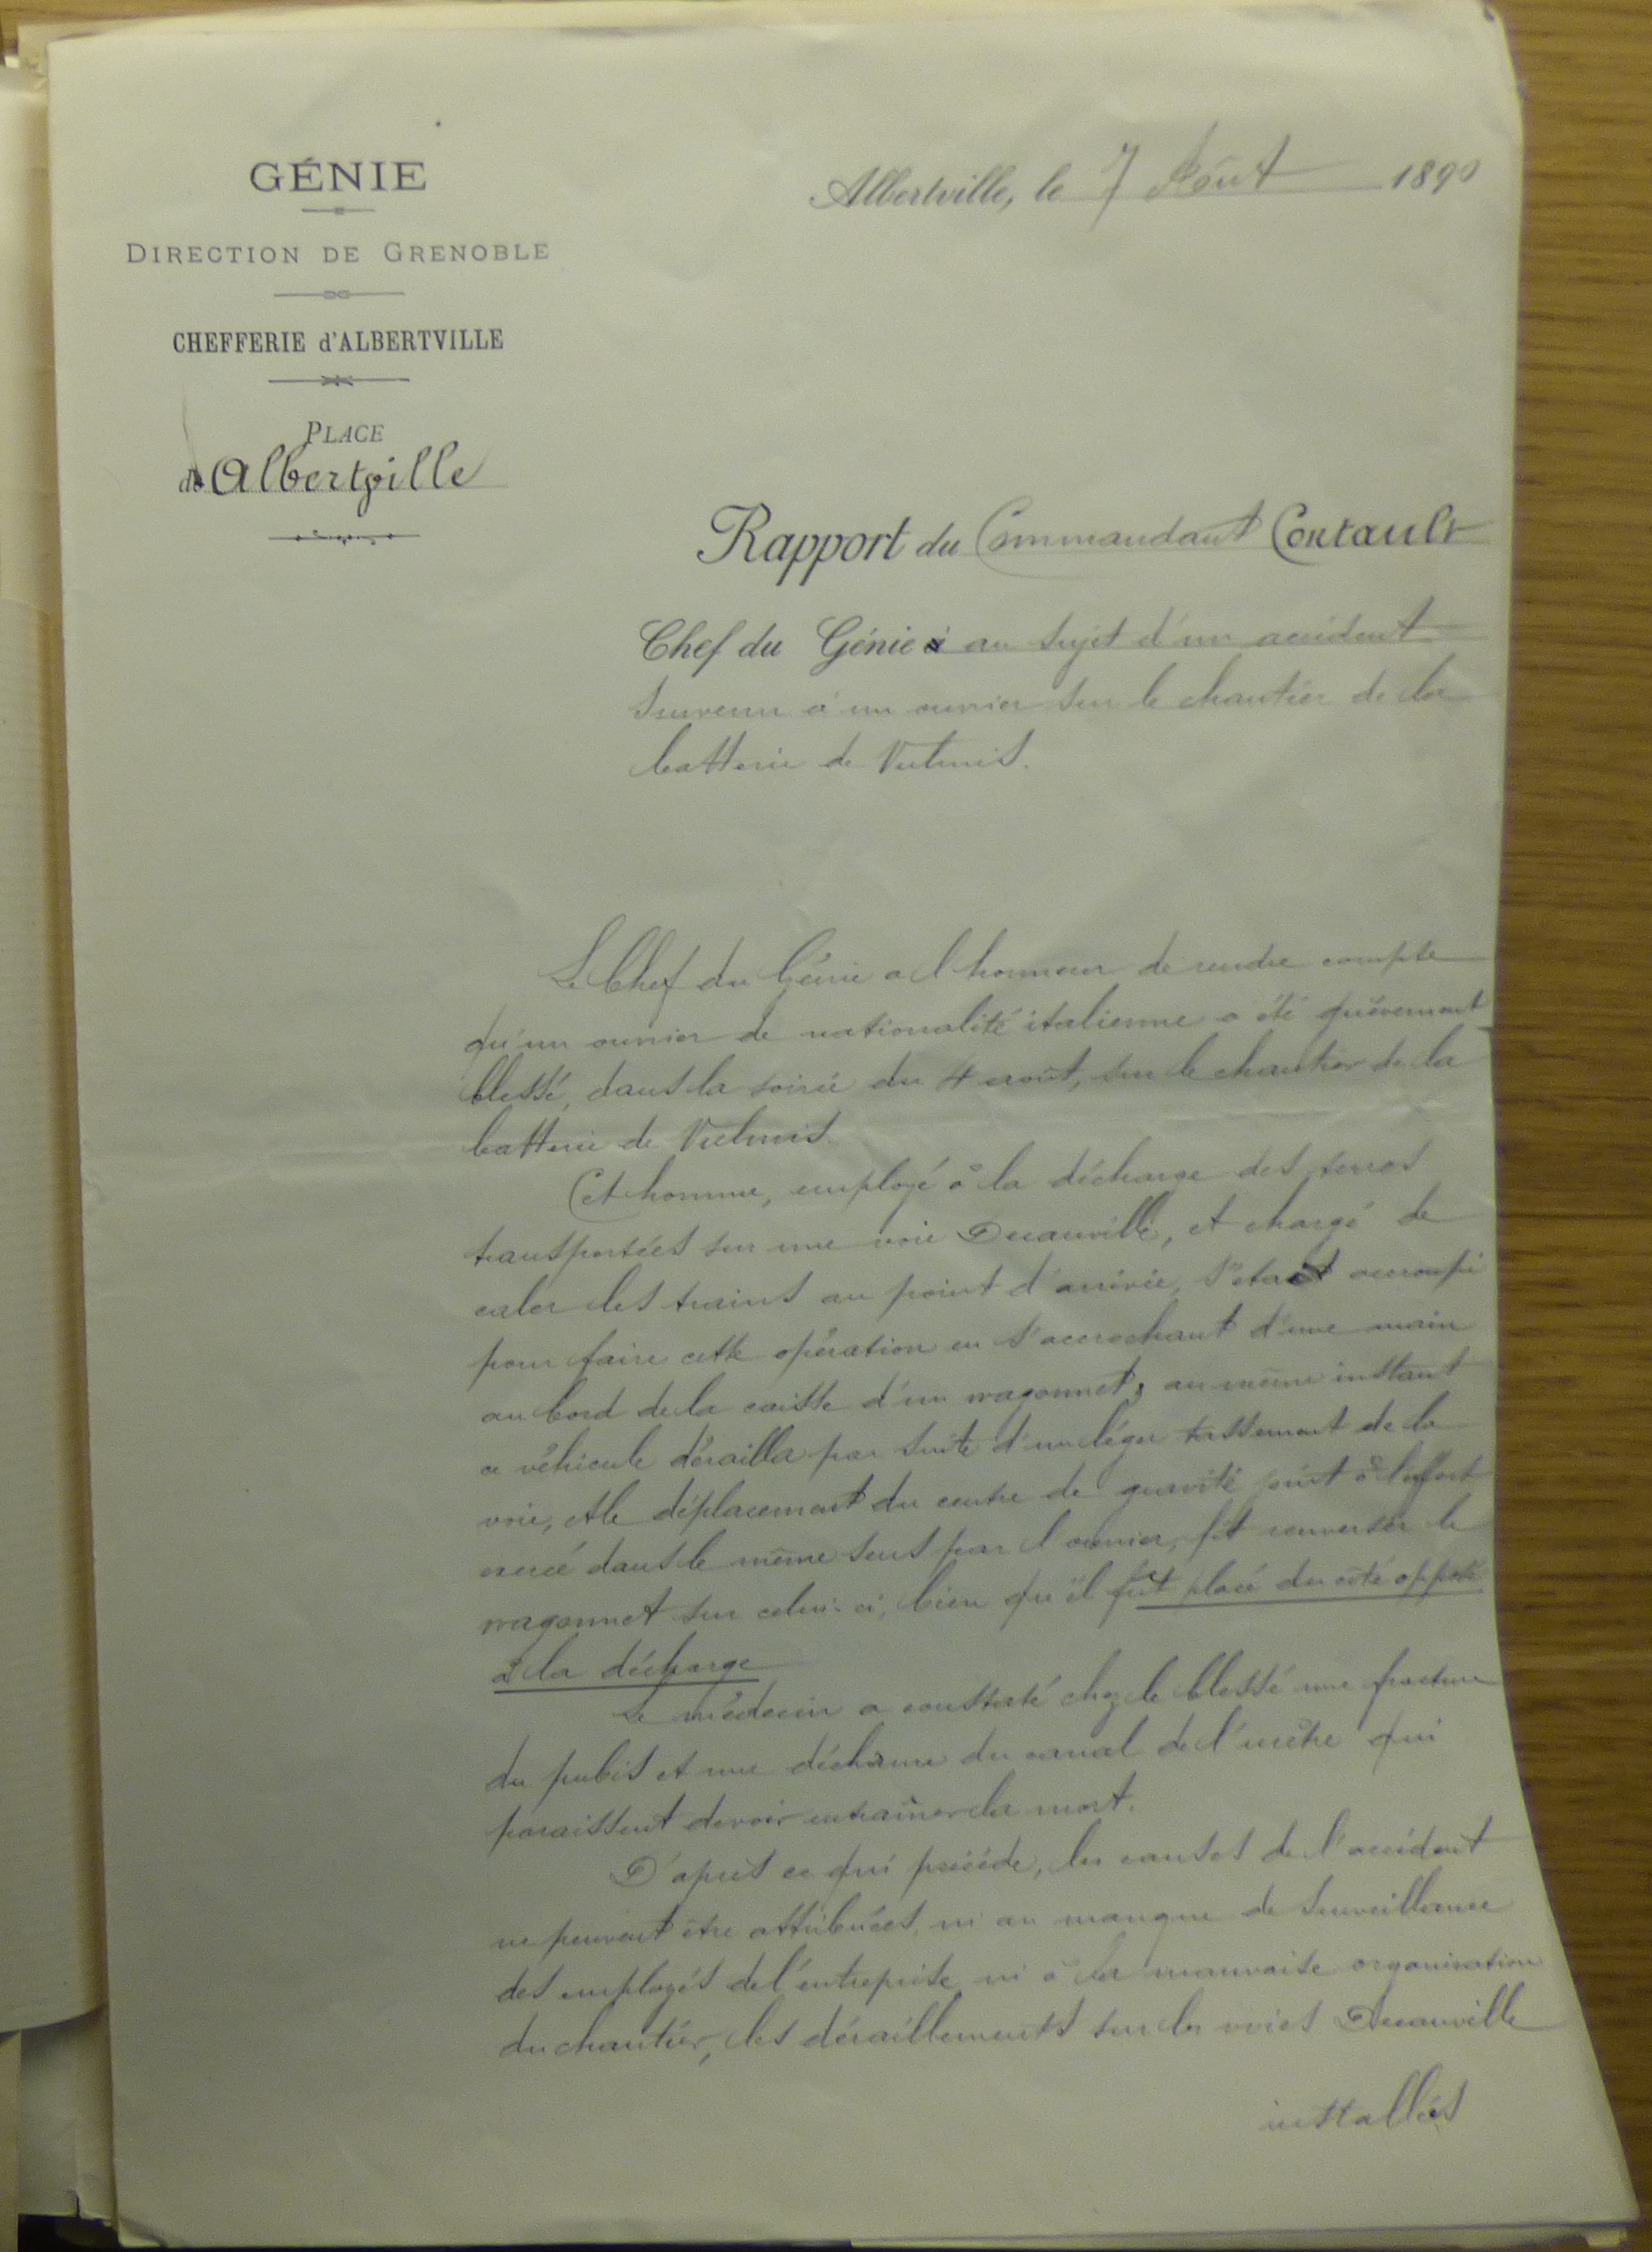 GÉNIE
DIRECTION DE GRENOBLE
CHEFFERIE d'ALBERTVILLE
PLACE
d'Albertville
Albertville, le 7 Août 1890
Rapport du Commandant
Chef du Génie au sujet d'un accident
survenu à un ouvrier sur le chantier de la
batterie de Vulmis.
Le Chef du Génie a l'honneur de rendre compte
qu'un ouvrier de nationalité italienne a été grièvement
blessé, dans la soirée du 4 août, sur le chantier de la
batterie de Vulmis.
Cet homme, employé à la décharge des terres
transportées sur une voie Decauville, et chargé de
caler les trains au point d'arrivée, s'était accroupi
pour faire cette opération en s'accrochant d'une main
au bord de la caisse d'un wagonnet; au même instant
ce véhicule dérailla par suite d'un léger tassement de la
voie, et le déplacement du centre de gravité joint à l'effort
exercé dans le même sens par l'ouvrier, fit renverser le
wagonnet sur celui-ci, bien qu'il fut placé du côté opposé
à la décharge
Le médecin a constaté chez le blessé une fracture
du pubis et une déchirure du canal de l'urètre qui
paraissent devoir entraîner la mort.
D'après ce qui précède, les causes de l'accident
ne peuvent être attribuées, ni au manque de surveillance
des employés de l'entreprise ni à la mauvaise organisation
du chantier, les déraillements sur les voies Decauville
installées